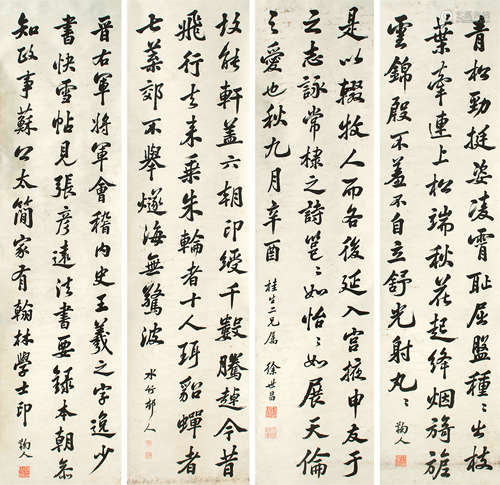 青松勁挺姿凌霄耻屈盤種〻出枝
葉牽連上松端秋花起絳烟旖旎
雲錦殷不羞不自立舒光射丸〻
鞠人
是以輟牧人而各後延入宫掖申友于
之志詠常棣之詩邕〻如怡〻如展天倫
之愛也秋九月辛酉
桂生二兄屬 徐世昌
故能軒蓋六朝印綬千數騰趠今昔
飛行去来乘朱輪者十人珥貂蟬者
七葉郊不舉燧海無驚波
水竹邨人
晉右軍將軍會稽内史王羲之字逸少
書快雪帖見張彦遠法書要録本朝叅
知政事蘇公太簡家有翰林學士印
鞠人